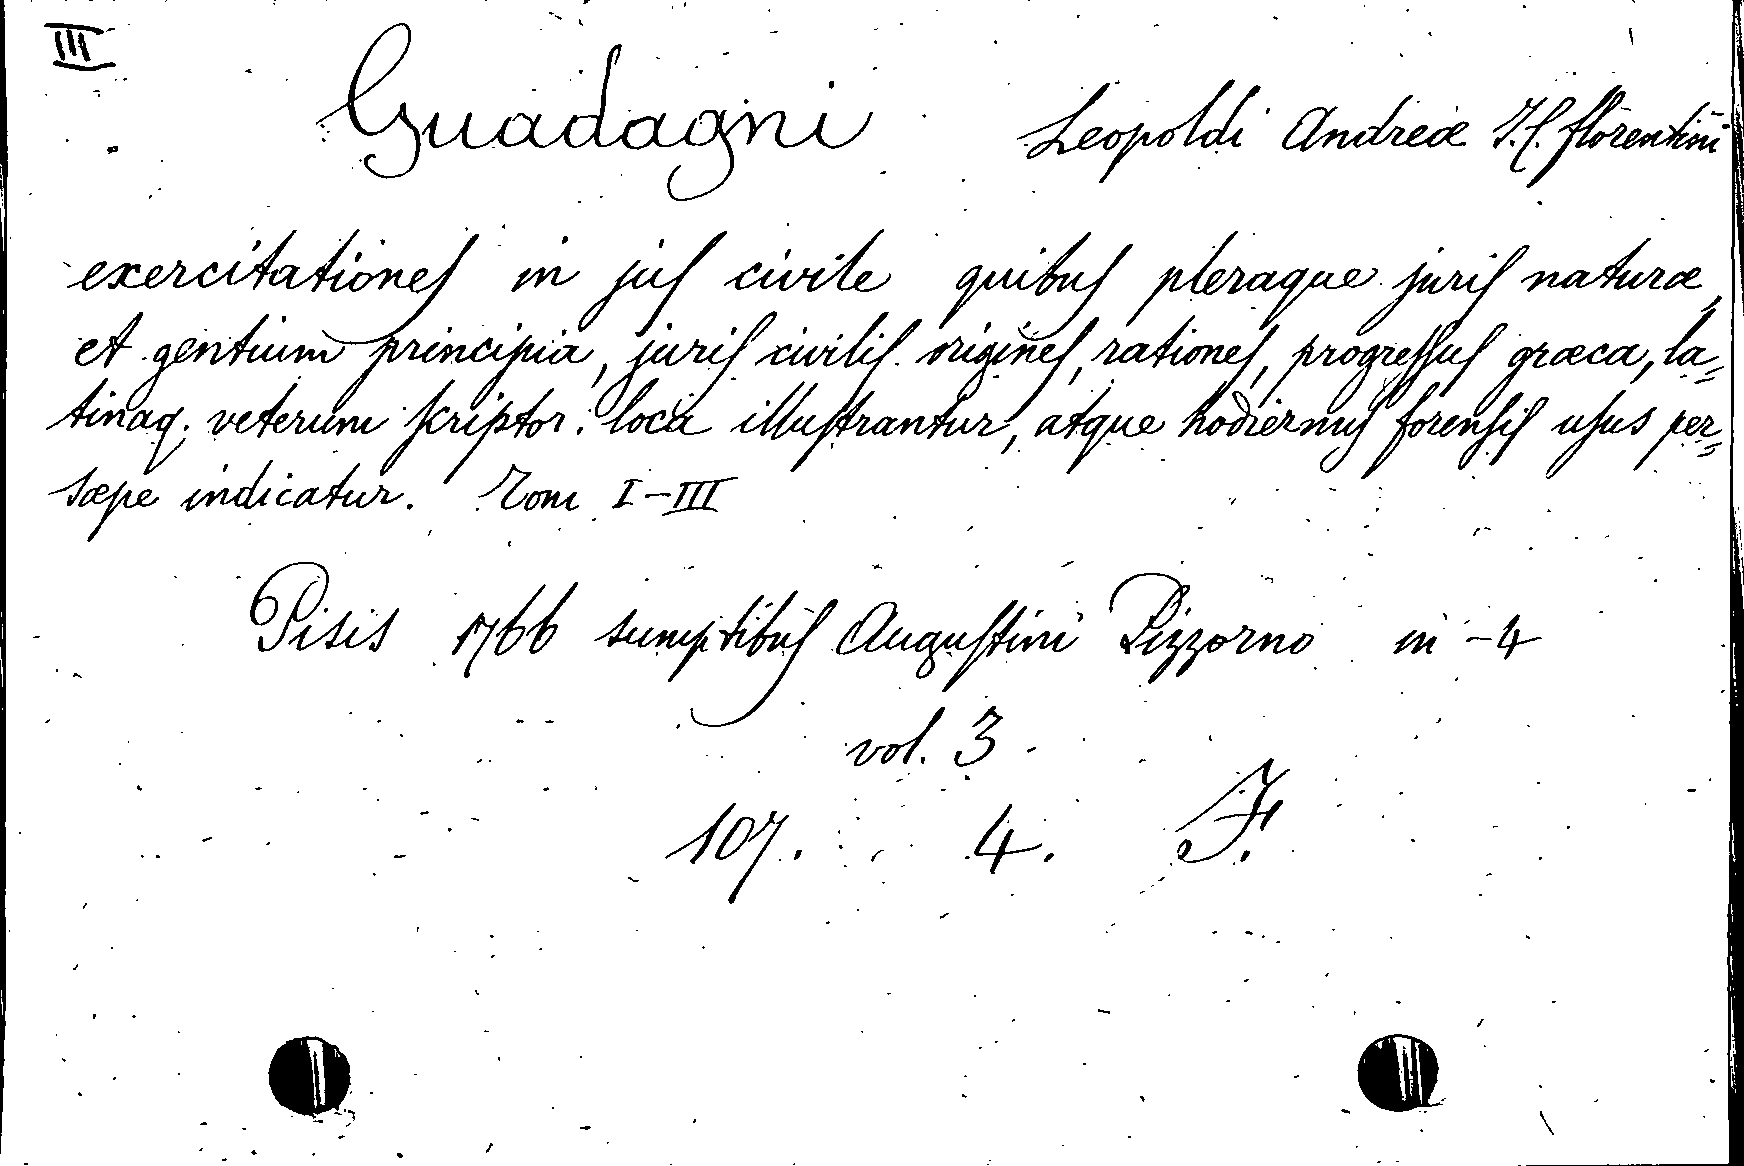 III
Guadagni Leopoldi Andreæ J.C. florentini
exercitationes in jus civile quibus pleraque juris naturæ,
et gentium principia, juris civilis origines, rationes, progressus græca, la=
tinaq; veterum scriptor. loca illustrantur, atque hodiernus forensis usus per=
sæpe indicatur. Tom I-III
Pisis 1766 sumptibus Augustini Pizzorno in -4
vol. 3
107. 4. F.